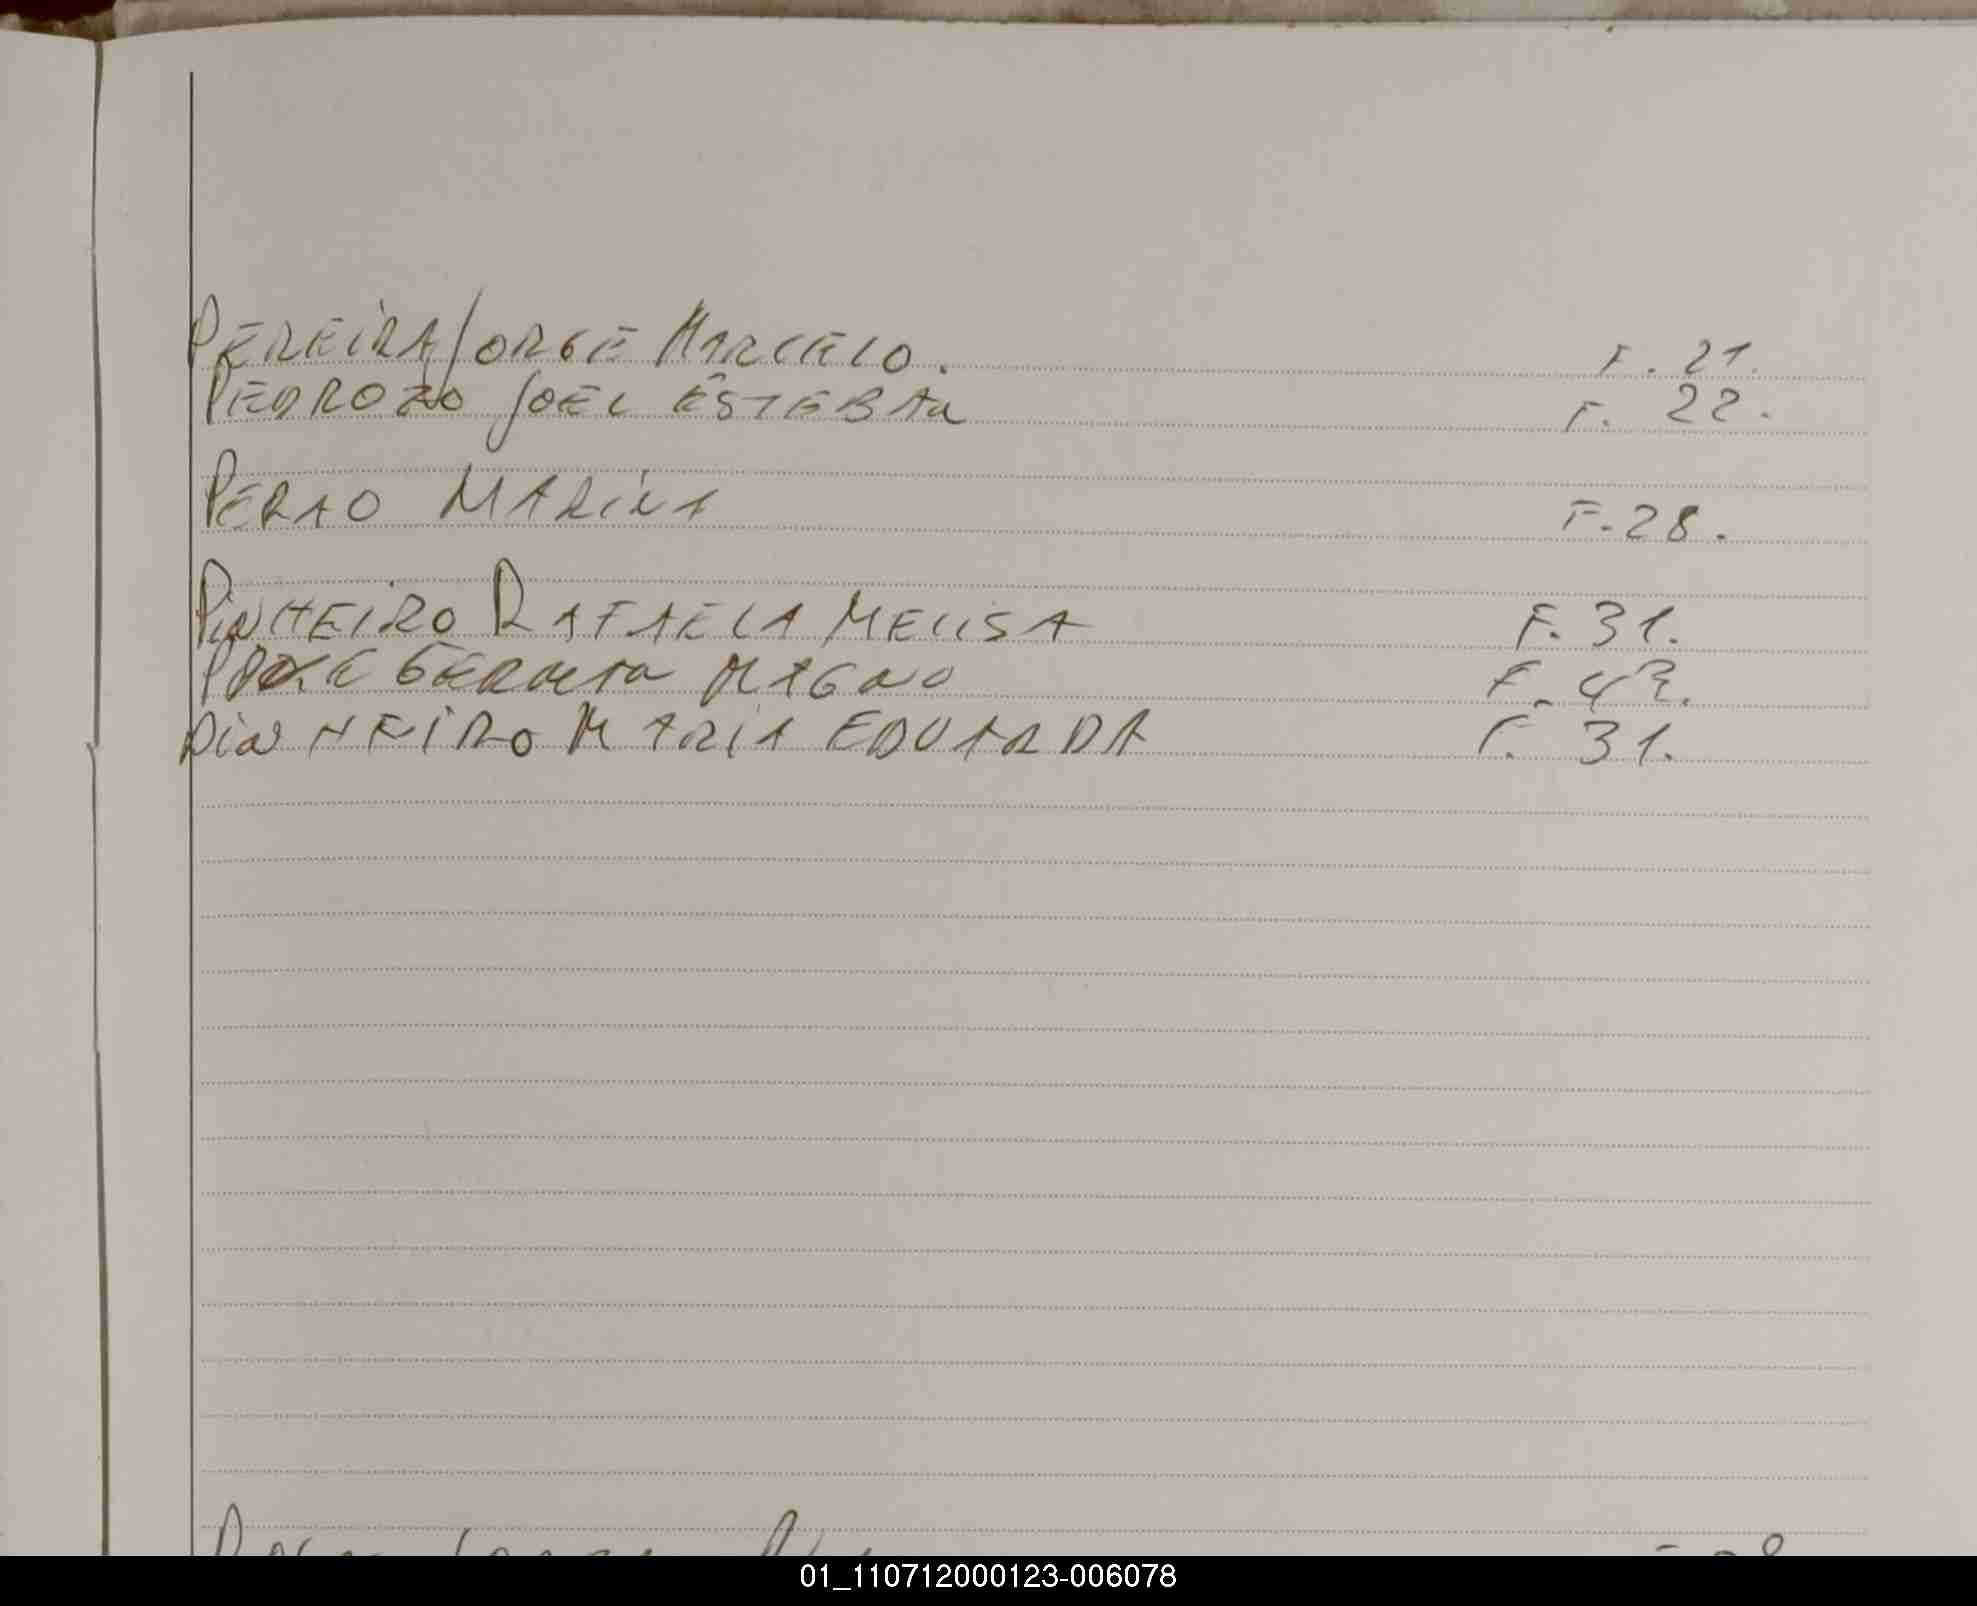 PEREIRA JORGE MARCELO. F. 21.
PEDROZO JOEL ESTEBAN F. 22.
PERAO MARINA F. 28.
PINHEIRO RAFAELA MELISA F. 31.
GERMAN MAGNO F. 42.
PINHEIRO MARIA EDUARDA F. 31.
01_110712000123-006078